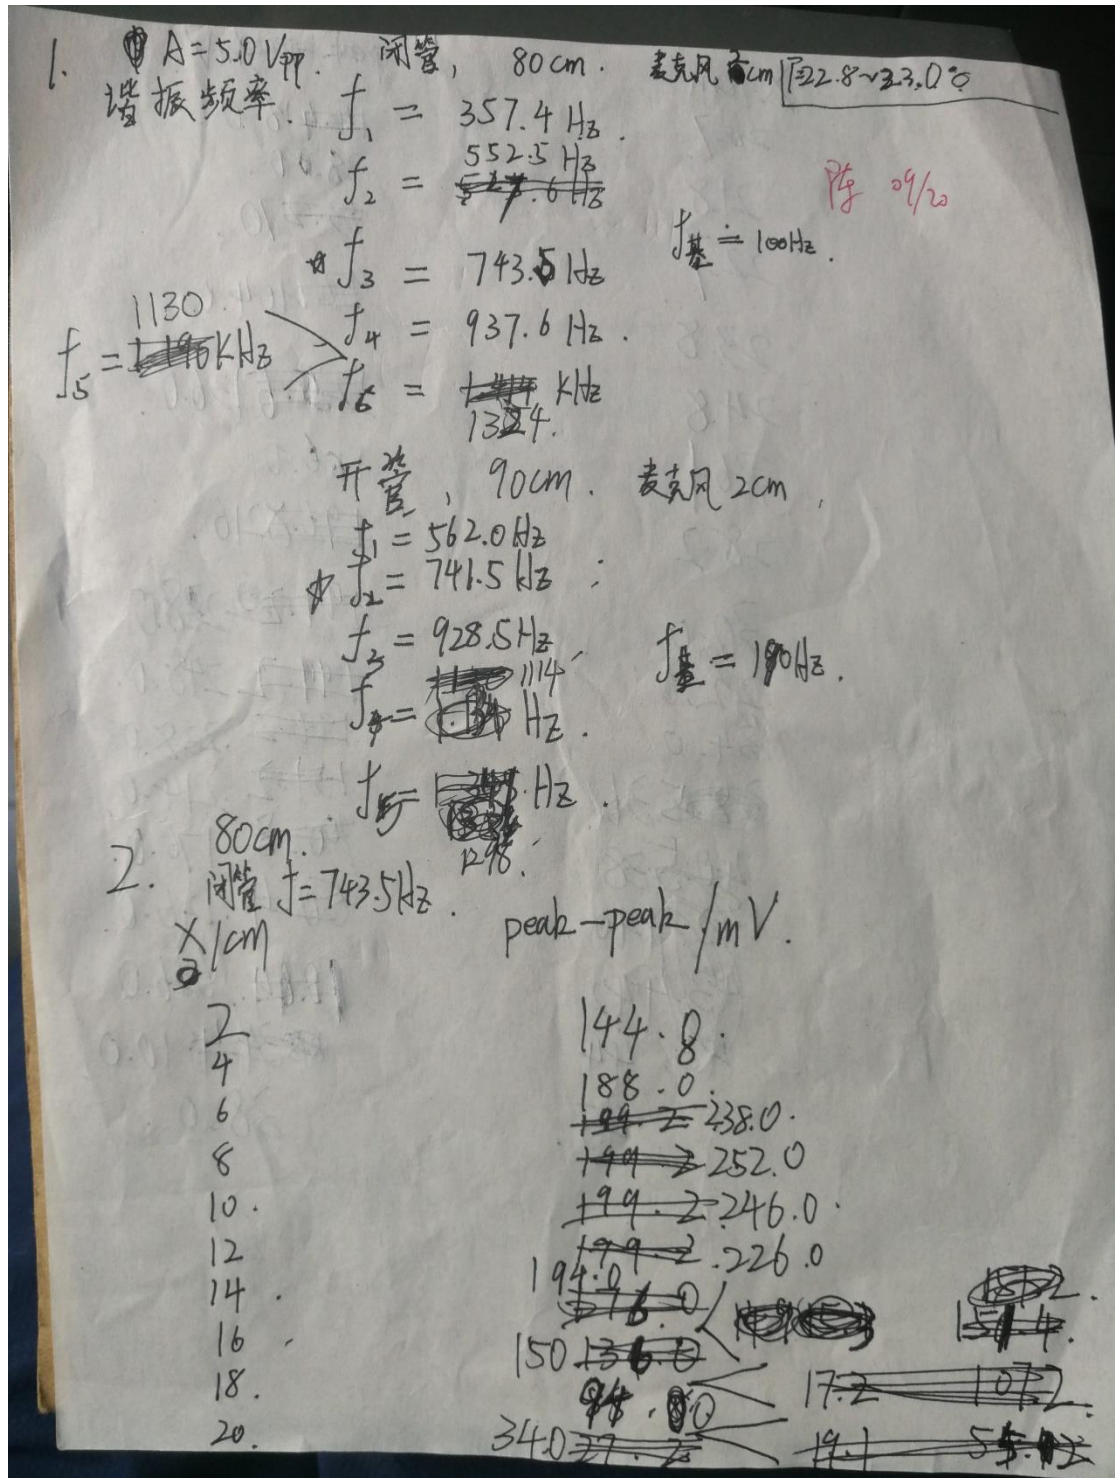 1. A=5.0Vpp. 闭管, 80cm. 麦克风 cm 22.8~23.0℃
谐振频率. f1 = 357.4 Hz.
552.5 Hz
f2 =
陈 09/20
f3 = 743.5 Hz
f基 ≐ 100Hz.
1130
f4 = 937.6 Hz.
f5 = KHz
f6 = KHz
1324.
开管, 90cm. 麦克风 2cm,
f1 = 562.0Hz
f2 = 741.5 Hz
f3 = 928.5Hz
f基 = 180Hz.
1114
f4 = Hz.
f5 = Hz.
1298.
2. 80cm.
闭管 f=743.5Hz.
X/cm peak-peak/mV.
2 144.8.
4 188.0.
6 238.0.
8 252.0
10. 246.0.
12 226.0
14. 194.0
16 150
18.
20. 34.0